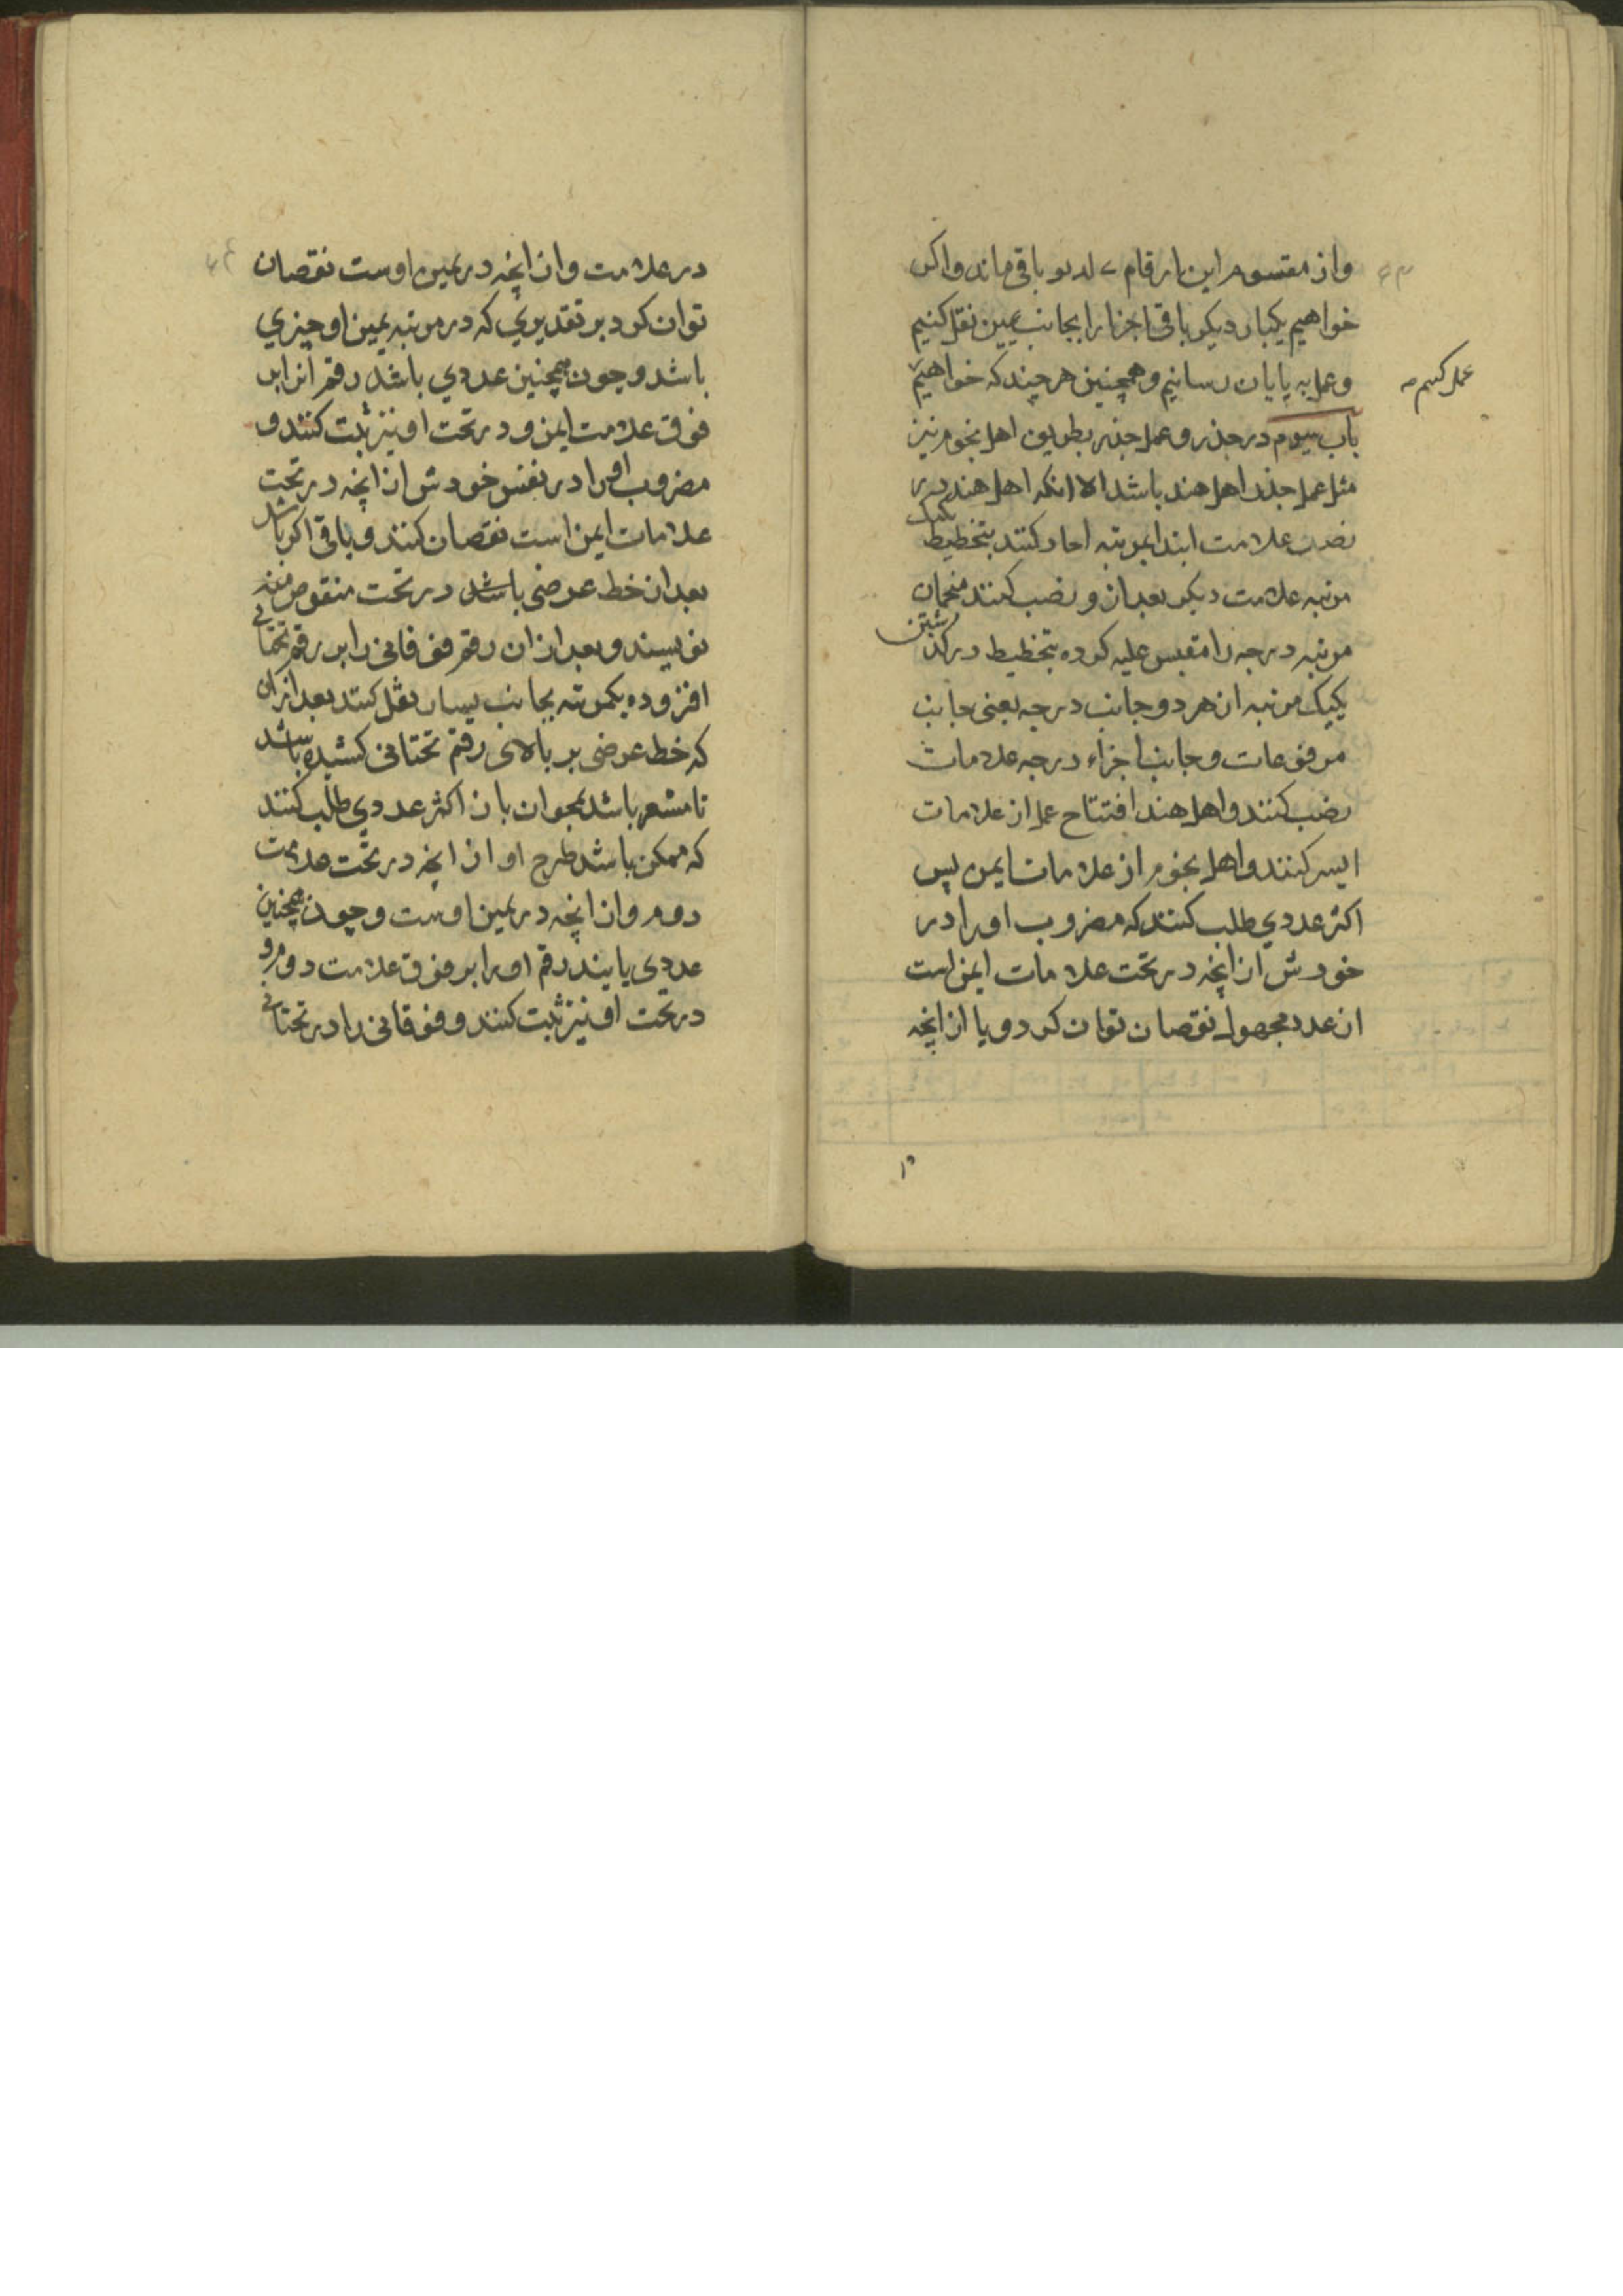 واز مقسوم این ارقام ء لد یو باقی ماند واکر
خواهیم یکبار دیکر باقی اجزا را بجانب یمین نقل کنیم
وعمل به پایان رسانیم وهمچنین هر چند که خواهیم
عمل کنیم
باب سیوم در جذر وعمل جذر بطریق اهل نجوم نیز
مثل عمل جذر اهل هند باشد الا انکه اهل هند در
نصب علامت ابتدا بمرتبه احاد کنند بتخطیط یک
مرتبه علامت دیکر بعد از و نصب کنند منجمان
مرتبه درجه را مقیس علیه کرده بتخطیط در کذشتن
یکیک مرتبه از هر دو جانب درجه یعنی جانب
مرفوعات وجانب اجزاء درجه علامات
نصب کنند واهل هند افتتاح عمل از علامات
ایسر کنند واهل نجوم از علامات ایمن پس
اکثر عددی طلب کنند که مضروب اورا در
خودش از انچه در تحت علامات ایمن است
از عدد مجهول نقصان توان کرد ویا از انچه
در علامت واز انچه در یمین اوست نقصان
توان کرد بر تقدیری که در مرتبه یمین او چیزی
باشد وچون همچنین عددی باشد رقم انرا بر
فوق علامت ایمن ودر تحت او نیز ثبت کنند و
مضروب اورا در نفس خودش از انچه در تحت
علامات ایمن است نقصان کنند وباقی اکر باشد
بعد از خط عرضی باشد در تحت منقوص منه
نویسند وبعد از ان رقم فوقانی را بر رقم تحتانی
افزوده یکمرتبه بجانب یسار نقل کنند بعد از ان
که خط عرضی بر بالای رقم تحتانی کشیده باشد
تا مشعر باشد بمحو ان باز اکثر عددی طلب کنند
که ممکن باشد طرح او از انچه در تحت علامت
دوم واز انچه در یمین اوست وچون همچنین
عددی یابند رقم اورا بر فوق علامت دوم و
در تحت او نیز ثبت کنند وفوقانی را در تحتانی